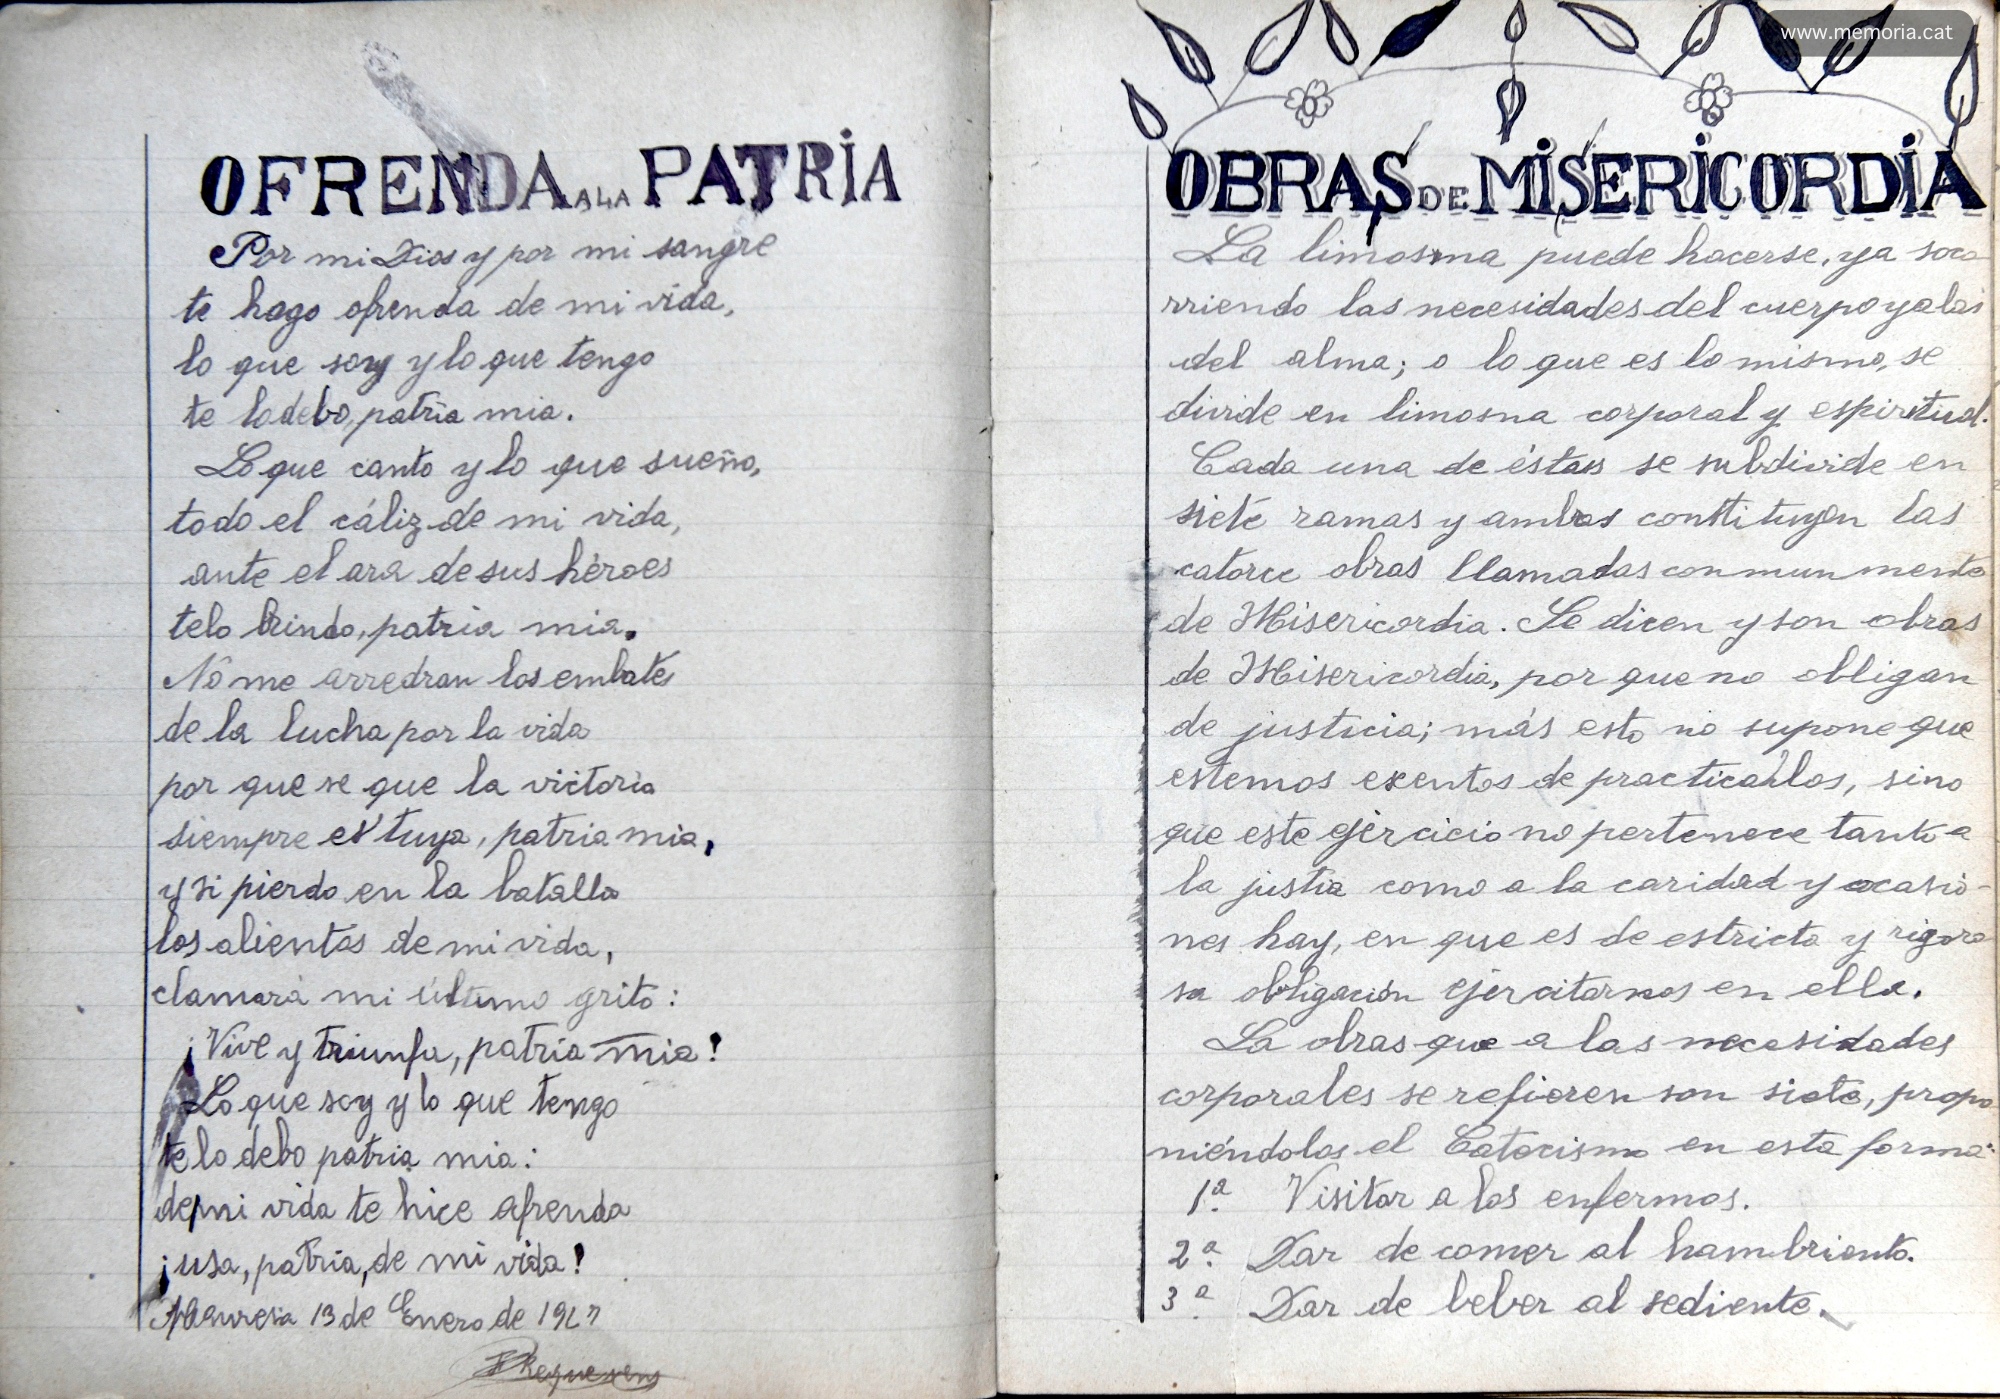 www.memoria.cat
OFRENDA A LA PATRIA
Por mi Dios y por mi sangre
te hago ofrenda de mi vida,
lo que soy y lo que tengo
te lo debo, patria mia.
Lo que canto y lo que sueño,
todo el cáliz de mi vida,
ante el ara de sus héroes
telo brindo, patria mia.
No me arredran los embates
de la lucha por la vida
por que se que la victoria
siempre es tuya, patria mia,
y si pierdo en la batalla
los alientos de mi vida,
clamará mi último grito:
¡Vive y triunfa, patria mia!
Lo que soy y lo que tengo
te lo debo patria mia:
de mi vida te hice ofrenda
¡usa, patria, de mi vida!
Manresa 13 de Enero de 1927
Requesens
OBRAS DE MISERICORDIA
La limosna puede hacerse, ya soco
rriendo las necesidades del cuerpo ya las
del alma; o lo que es lo mismo, se
divide en limosna corporal y espiritual.
Cada una de éstas se subdivide en
siete ramas y ambas constituyen las
catorce obras llamadas conmunmente
de Misericordia. Se dicen y son obras
de Misericordia, por que no obligan
de justicia; más esto no supone que
estemos exentos de practicarlas, sino
que este ejercicio no pertenece tanto a
la justia como a la caridad y ocasio-
nes hay, en que es de estricta y rigoro
sa obligación ejercitarnos en ella.
La obras que a las necesidades
corporales se refieren son siete, propo
niéndolas el Catecismo en esta forma:
1ª. Visitar a los enfermos.
2ª. Dar de comer al hambriento.
3ª. Dar de beber al sediento.